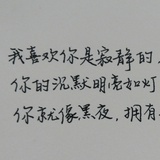 我喜欢你是寂静的
你的沉默明亮如灯
你就像黑夜，拥有